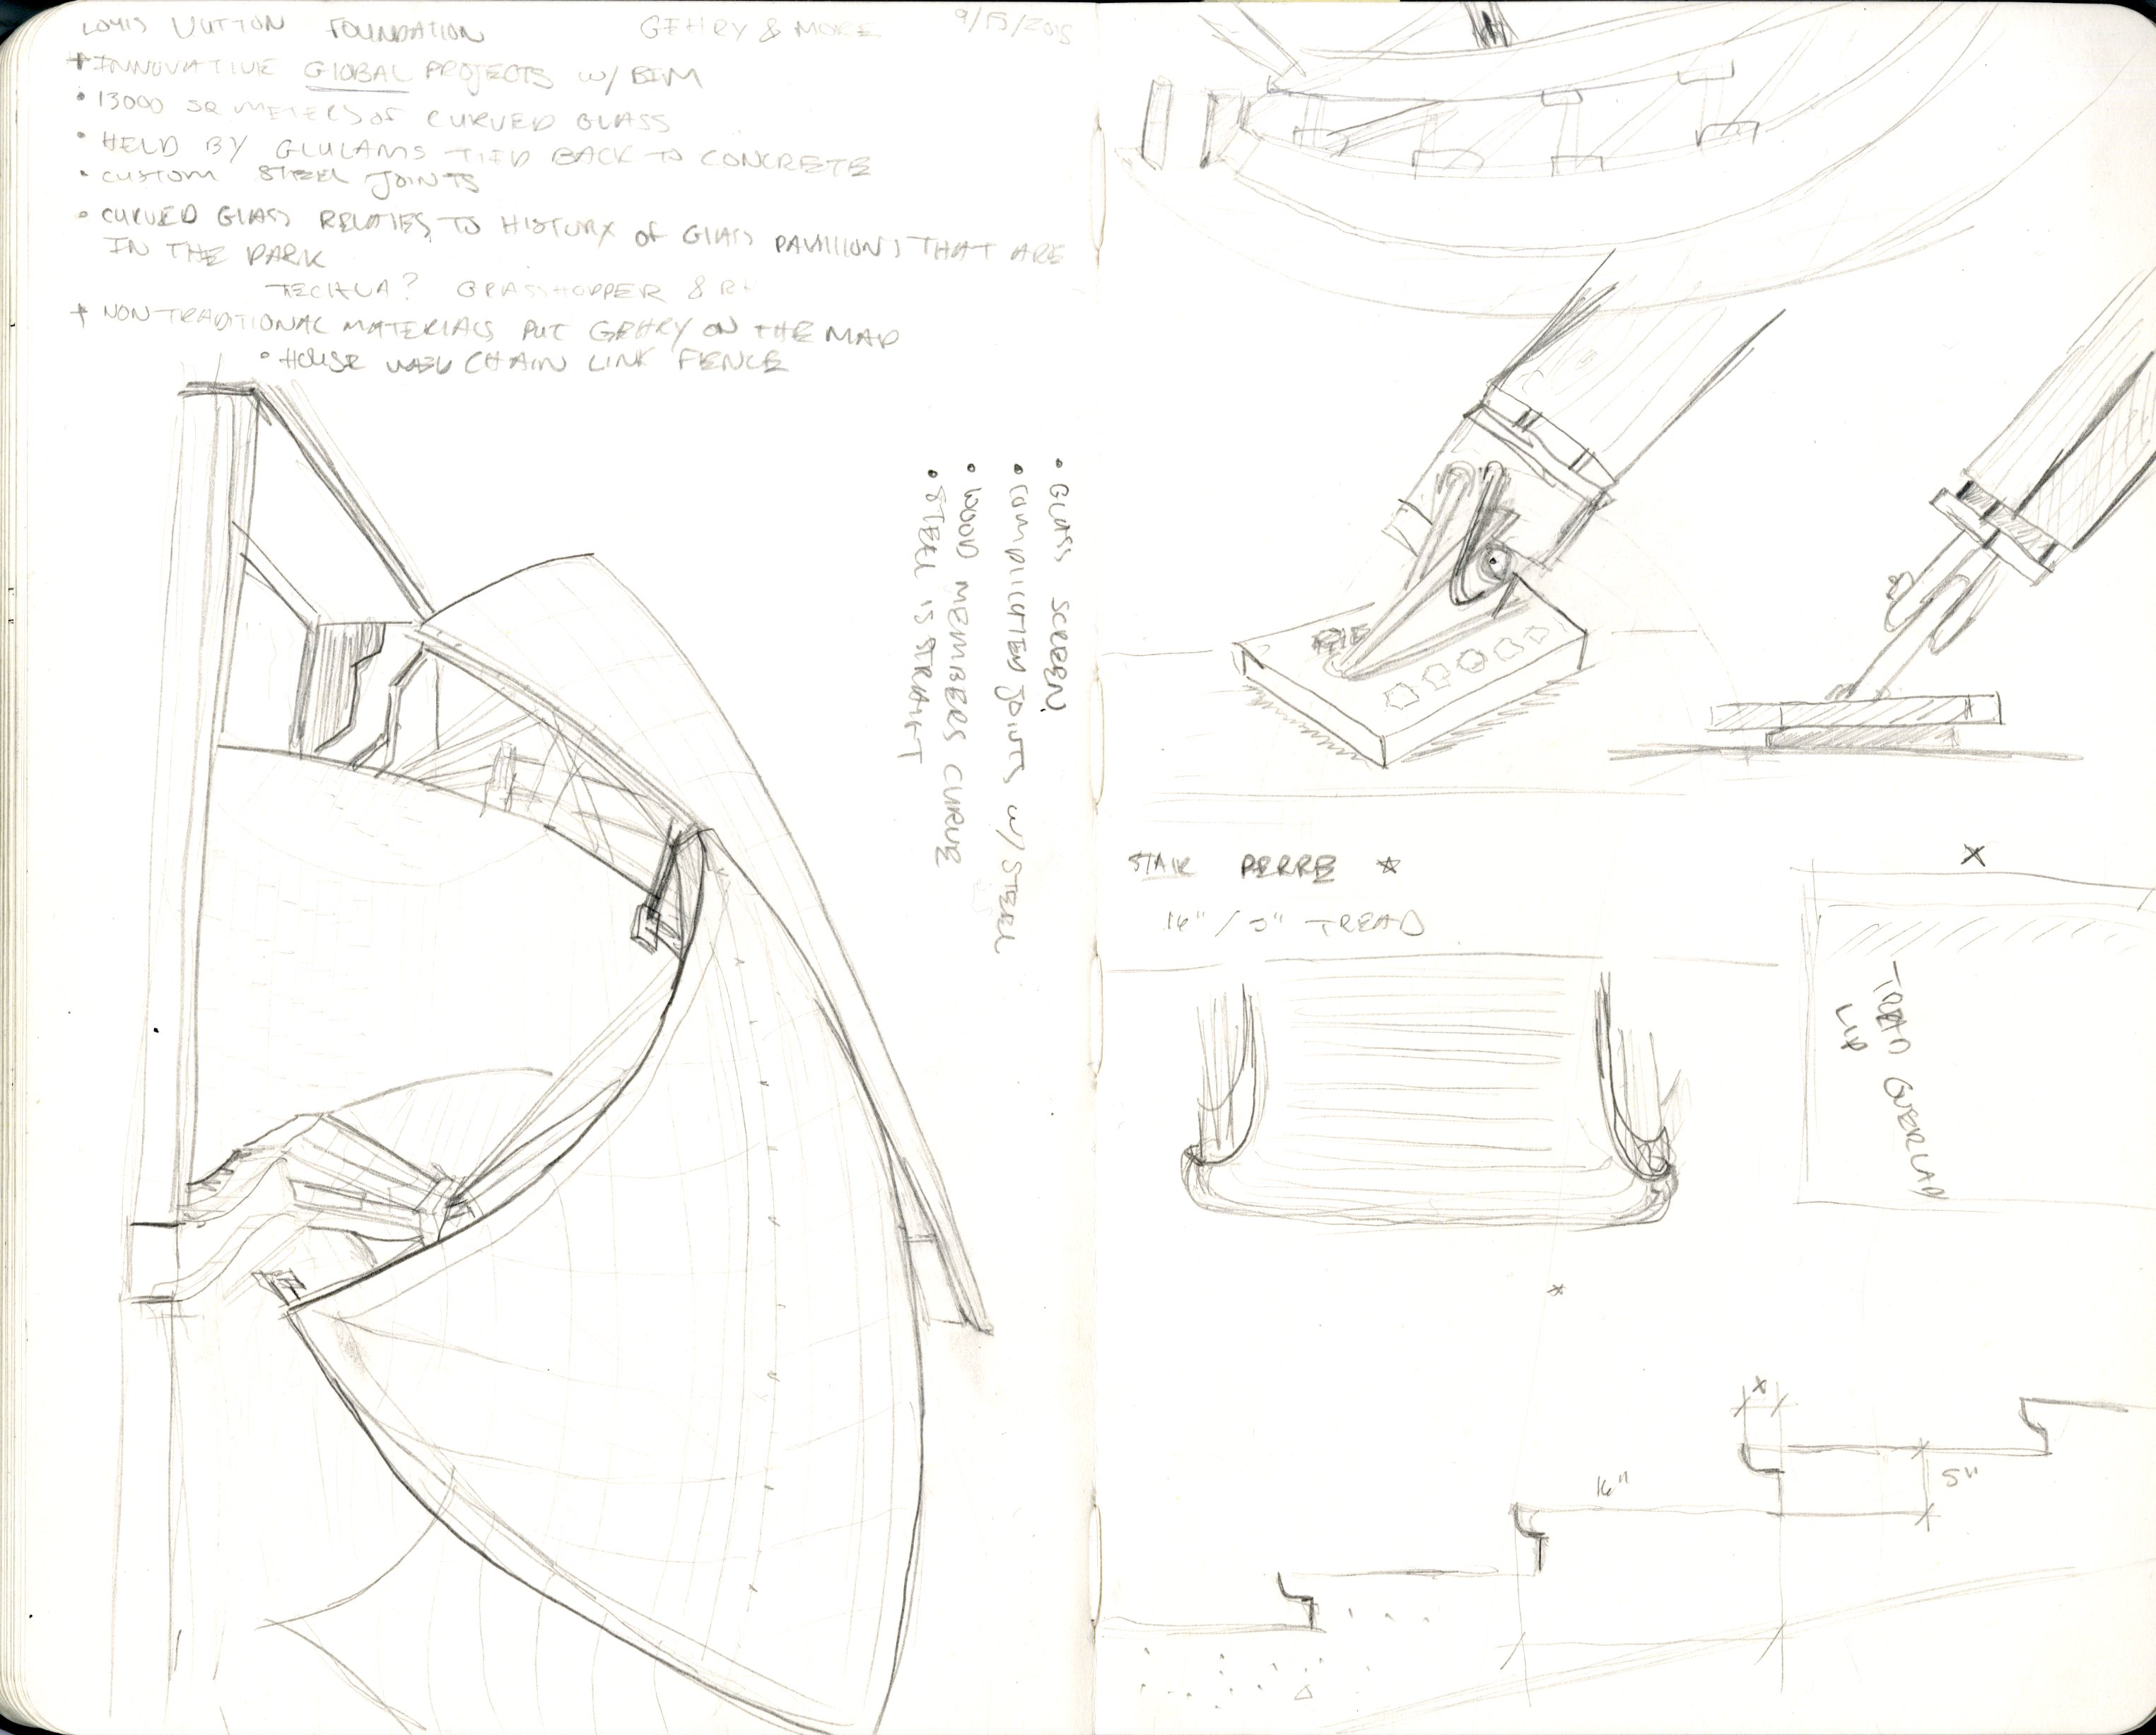 LOUIS VUTTON FOUNDATION GEHRY & MORE 9/15/2015
+ INNOVATIVE GLOBAL PROJECTS W/ BIM
• 13000 SQ METERS OF CURVED GLASS
• HELD BY GLULAMS TIED BACK TO CONCRETE
• CUSTOM STEEL JOINTS
• CURVED GLASS RELATES TO HISTORY OF GLASS PAVILLIONS THAT ARE
IN THE PARK
GRASSHOPPER &
+ NON TRADITIONAL MATERIALS PUT GEHRY ON THE MAP
• HOUSE CHAIN LINK FENCE
• GLASS SCREEN
• COMPLICATED JOINTS W/ STEEL
• WOOD MEMBERS CURVE
• STEEL IS STRAIGT
STAIR
16" / 5" TREAD
X
TREAD OVERLAP
X
16"
5"